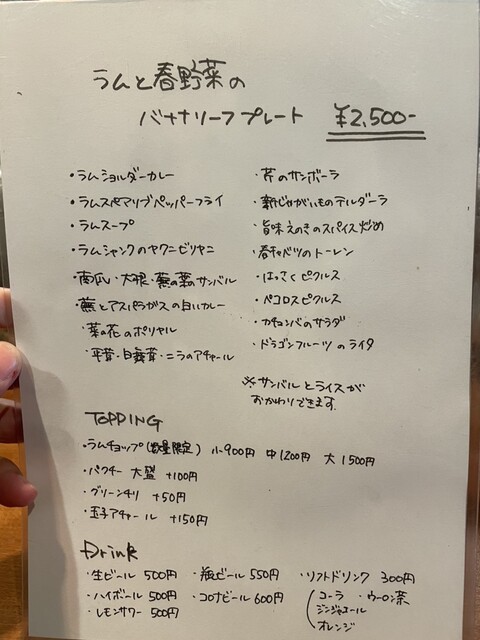 ラムと春野菜の
バナナリーフプレート ¥2,500-
・ラムショルダーカレー
・ラムスペアリブペッパーフライ
・ラムスープ
・ラムシャンクのヤクニビリヤニ
・南瓜・大根・蕪の葉のサンバル
・蕪とアスパラガスの白いカレー
・菜の花のポリヤル
・平茸・白舞茸・ニラのアチャール
・芹のサンボーラ
・新じゃがいものテルダーラ
・旨味えのきのスパイス炒め
・春キャベツのトーレン
・はっさくピクルス
・ペコロスピクルス
・カチュンバのサラダ
・ドラゴンフルーツのライタ
※サンバルとライスが
おかわりできます。
TOPPING
・ラムチョップ(数量限定) 小900円 中1200円 大1500円
・パクチー大盛 +100円
・グリーンチリ +50円
・玉子アチャール +150円
Drink
・生ビール 500円 ・瓶ビール 550円 ・ソフトドリンク 300円
・ハイボール 500円 ・コロナビール 600円 (コーラ ・ウーロン茶
・レモンサワー 500円 ジンジャエール
オレンジ